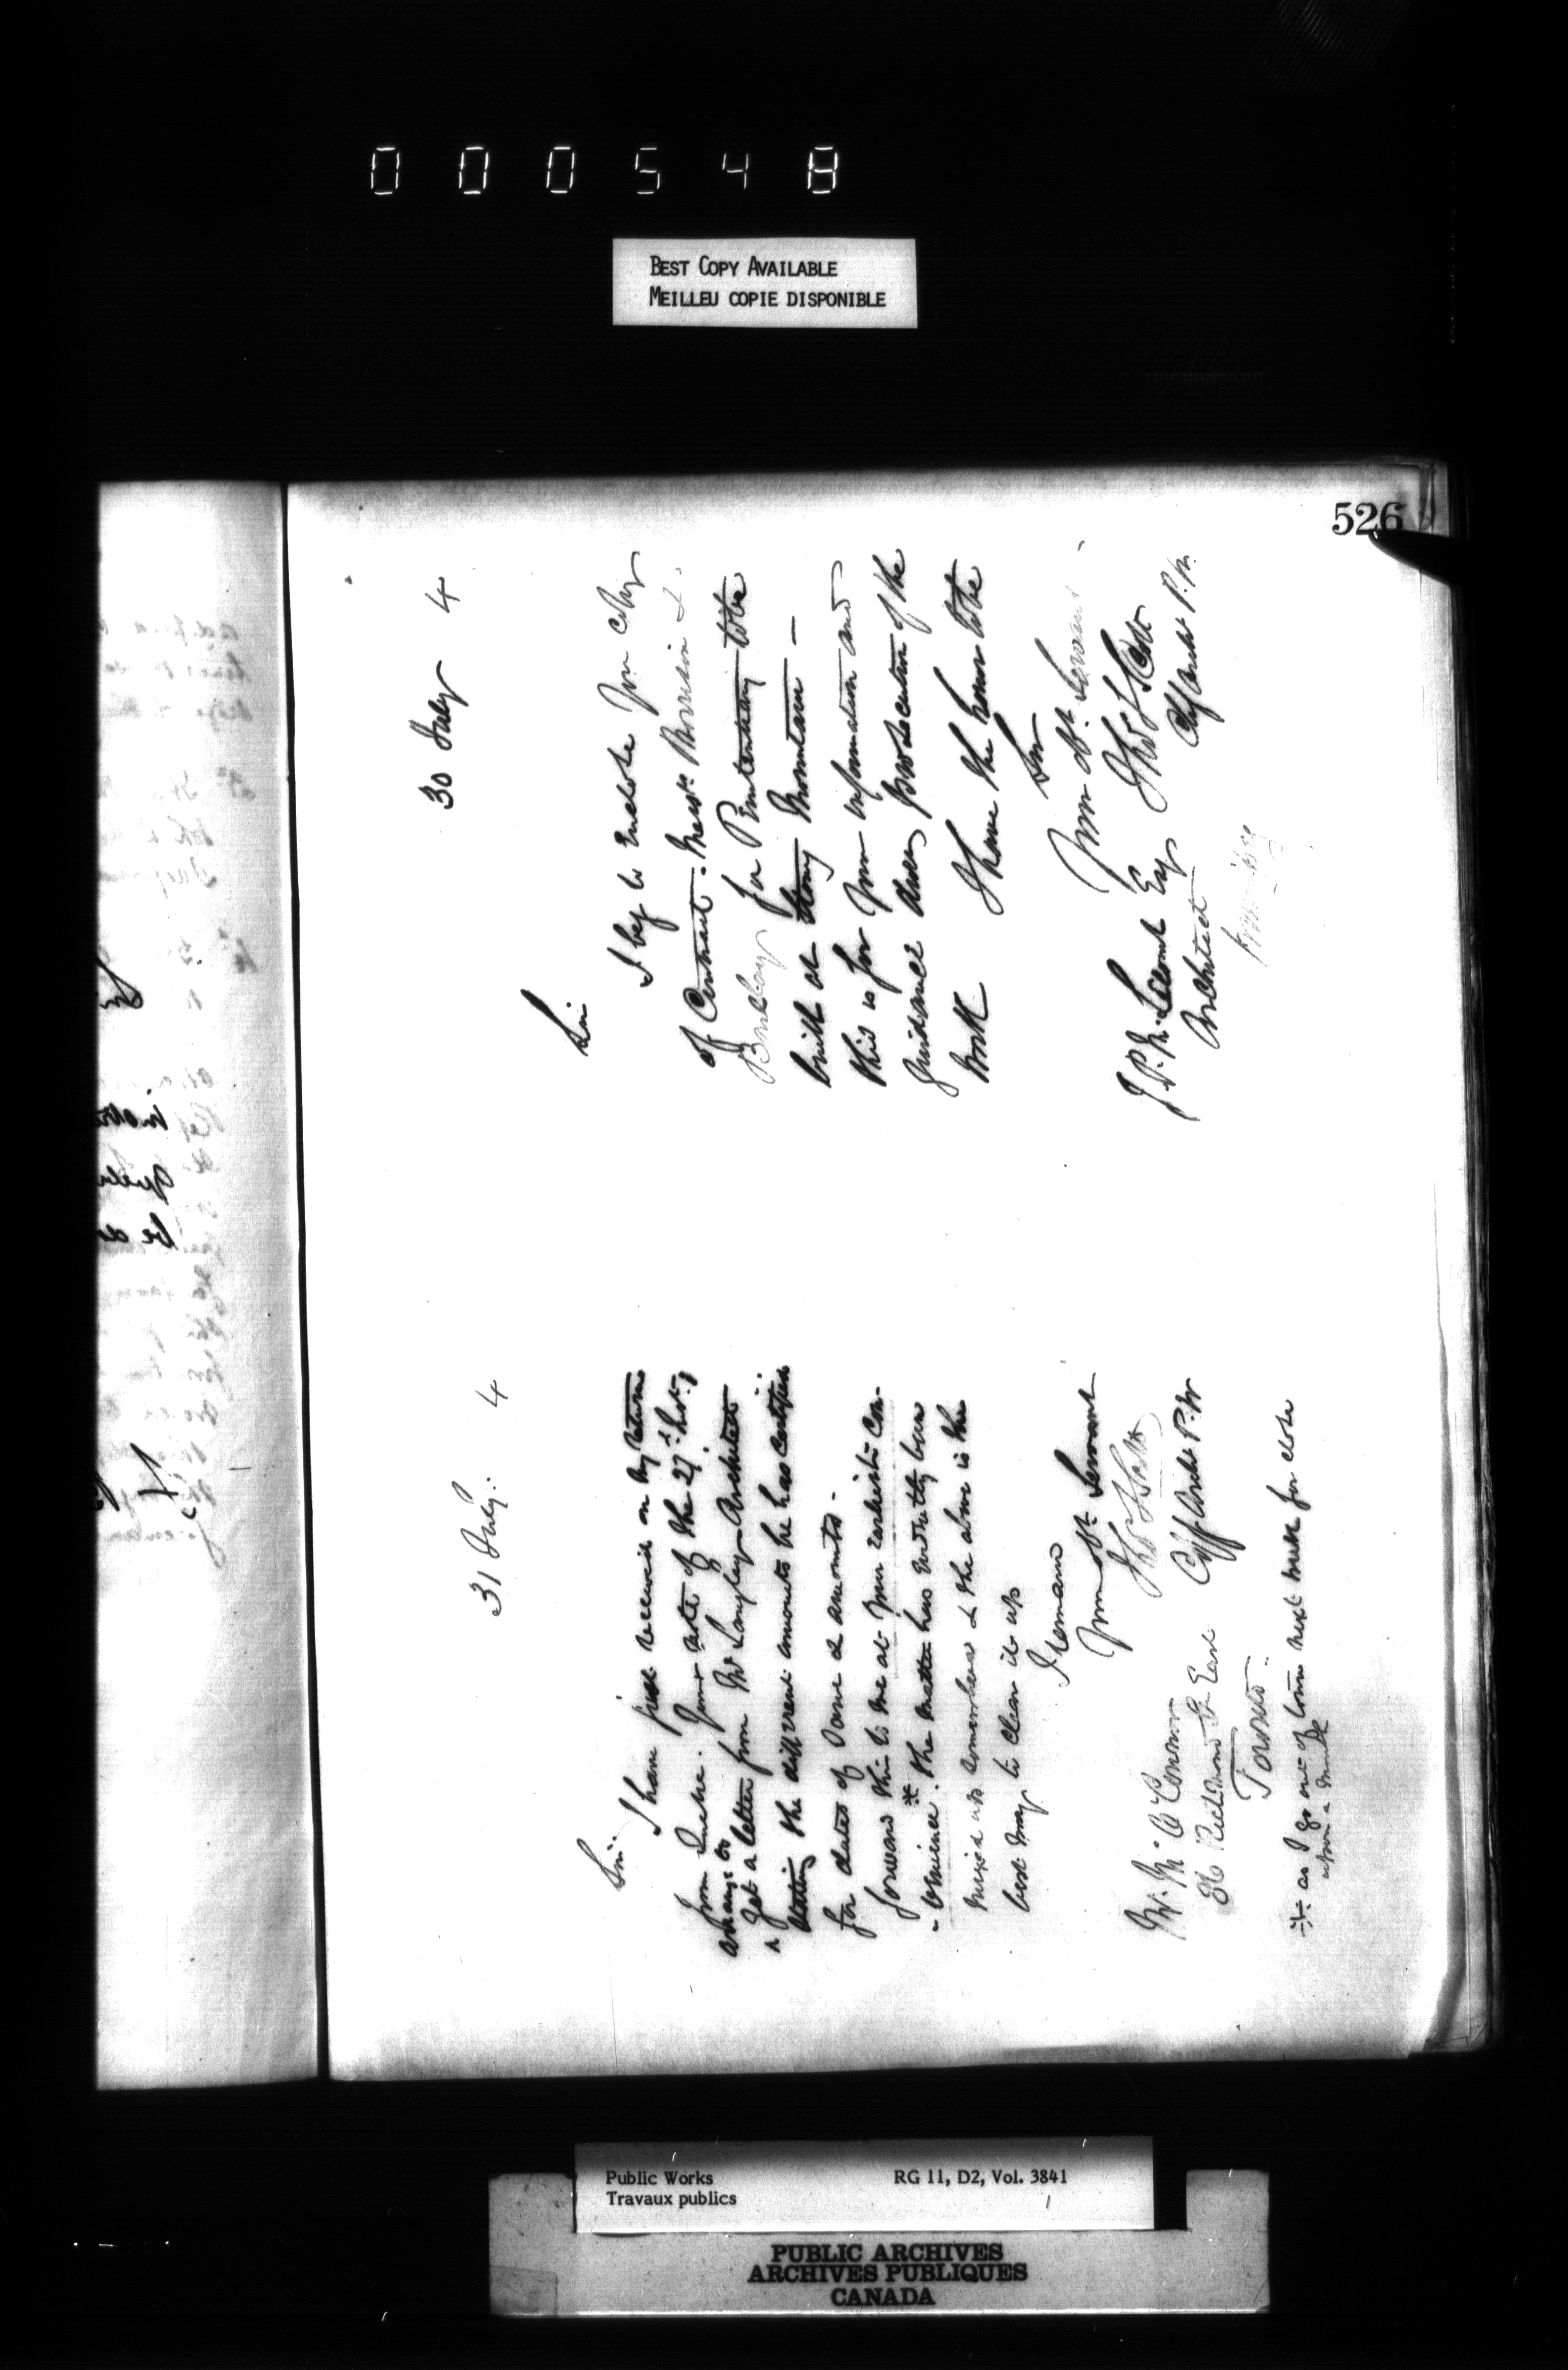 000548
BEST COPY AVAILABLE
MEILLEU COPIE DISPONIBLE
526
31 July. 4
Sir.
I have just received on my return
from Quebec. Your note of the 27th Inst,
arrange to
get a letter from Mr Langley Architect
stating the different amounts he has certified
for dates of same & amounts.
forward this to me at your earliest Con-
-venience. * the matter has evidently been
mixed up somewhere & the above is the
best way to clear it up
I remain
Your Obt Servant
Thos S Scott
Chf Archt P.W
Mr. Mc Connor
36 Richmond St East
Toronto.
* as I go out of town next week for about
a month
30 July 4
Sir
I beg to enclose you copy
of Contract. Messrs Morrison &
for Penitentiary to be
built at Stony Mountain —
this is for your information and
guidance during prosecution of the
work
I have the honor to be
Sir
Your Obt Servant
Thos S Scott
Chf Archt P.W.
J.P.M. Lecourt Esq
Architect
Winnipeg
Public Works
Travaux publics
RG 11, D2, Vol. 3841
PUBLIC ARCHIVES
ARCHIVES PUBLIQUES
CANADA